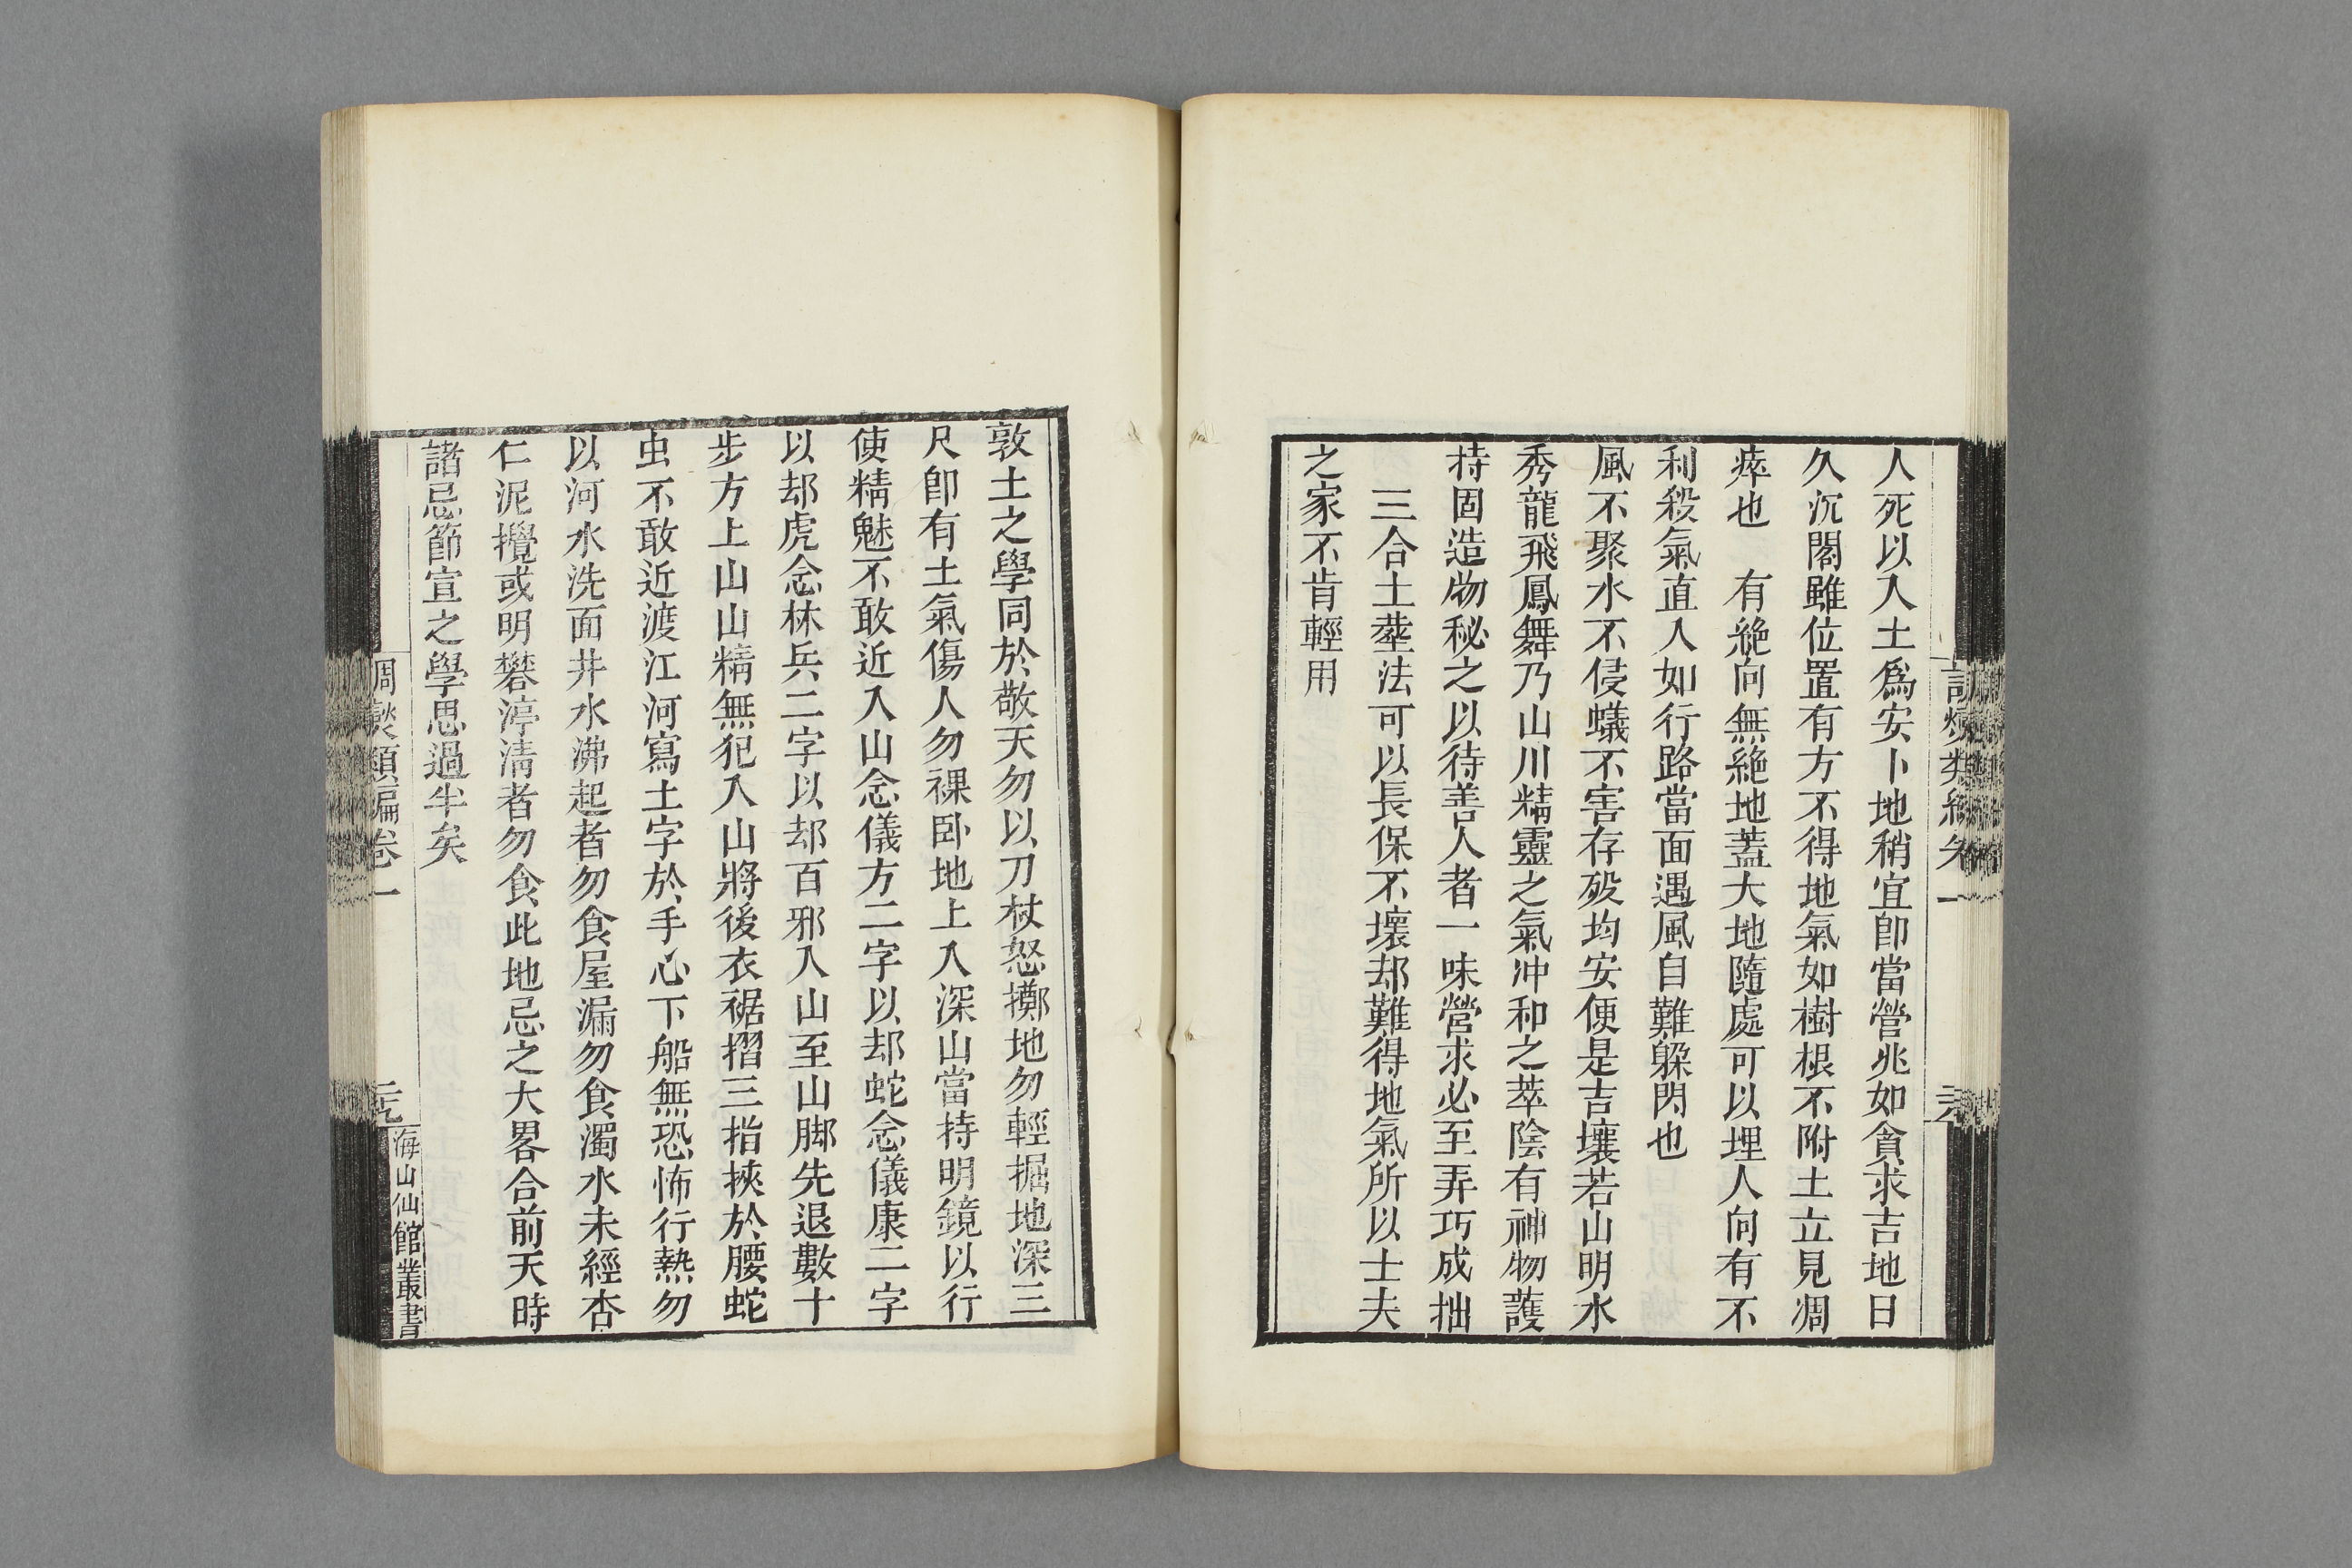 人死以入土爲安卜地稍宜卽當營兆如貪求吉地日
久沉閣雖位置有方不得地氣如樹根不附土立見凋
瘁也　有絶向無絶地蓋大地隨處可以埋人向有不
利殺氣直入如行路當面遇風自難躲閃也
風不聚水不侵蟻不害存殁均安便是吉壤若山明水
秀龍飛鳳舞乃山川精靈之氣冲和之萃陰有神物護
持固造物秘之以待善人者一味營求必至弄巧成拙
三合土塟法可以長保不壞却難得地氣所以士夫
之家不肯輕用
敦土之學同於敬天勿以刀杖怒擲地勿輕掘地深三
尺卽有土氣傷人勿裸卧地上入深山當持明鏡以行
使精魅不敢近入山念儀方二字以却蛇念儀康二字
以却虎念林兵二字以却百邪入山至山脚先退數十
步方上山山精無犯入山將後衣裾摺三指挾於腰蛇
虫不敢近渡江河寫土字於手心下船無恐怖行熱勿
以河水洗面井水沸起者勿食屋漏勿食濁水未經杏
仁泥攪或明礬渟淸者勿食此地忌之大畧合前天時
諸忌節宣之學思過半矣
調燮類編卷一
海山仙館叢書